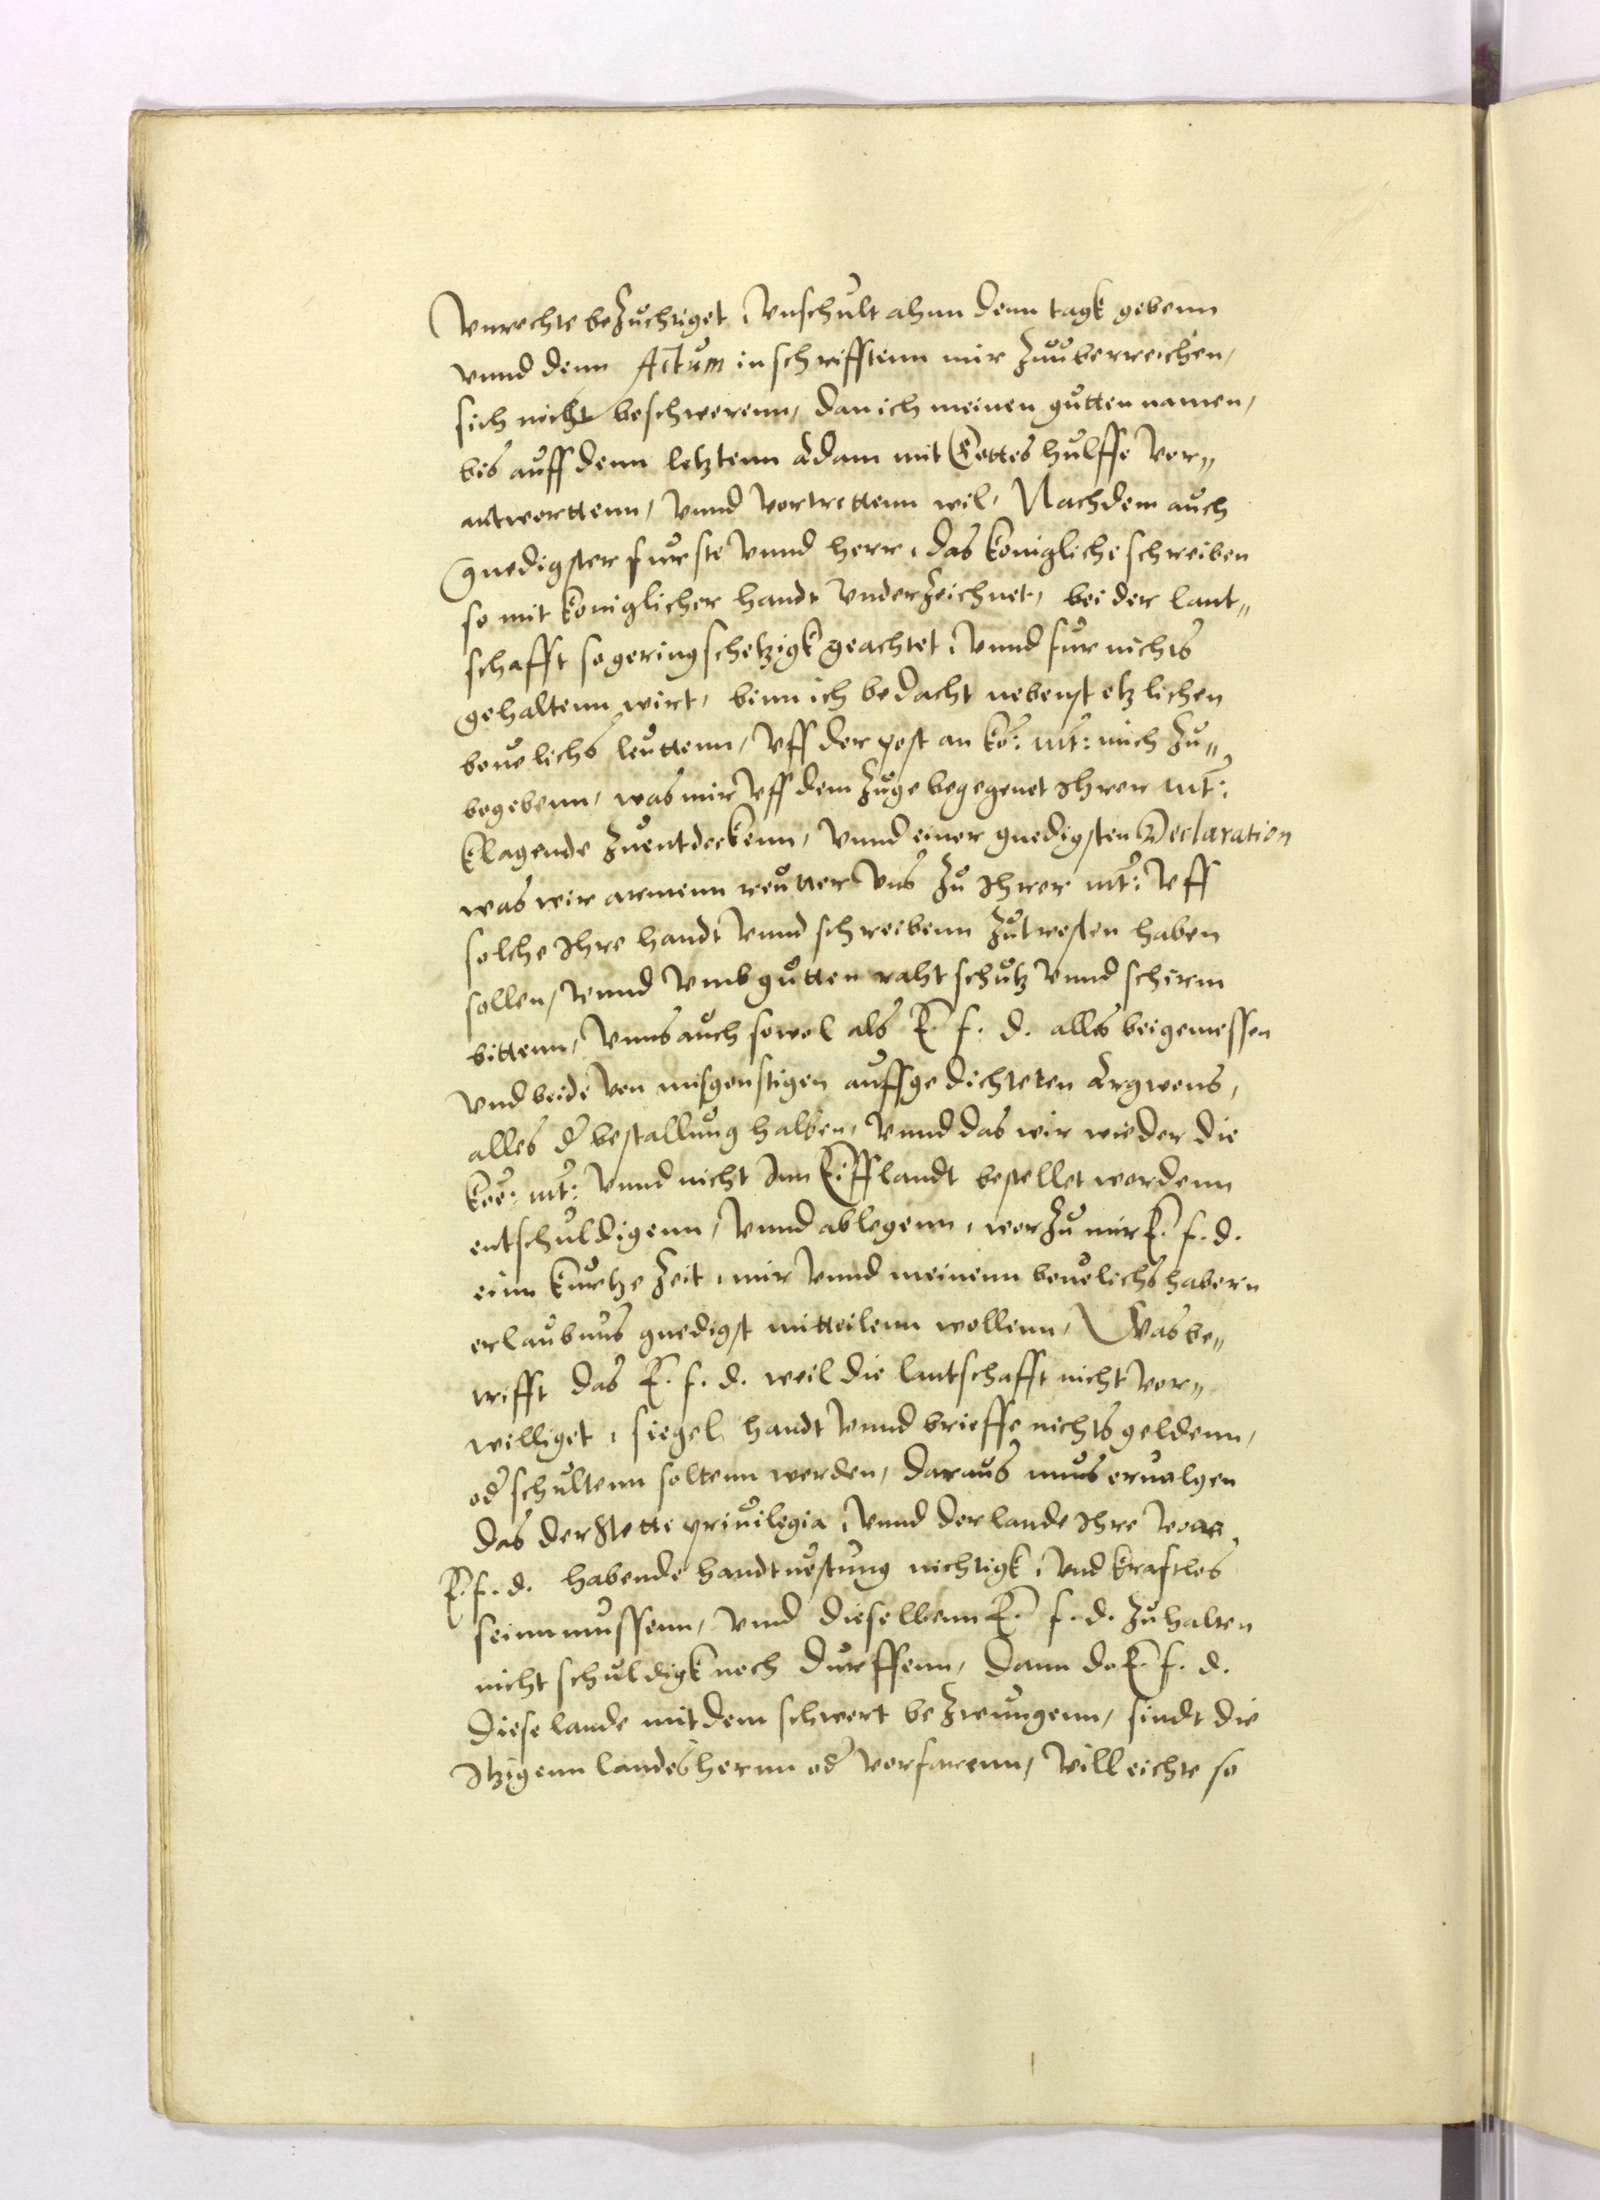 Vnrechte beZuchtiget, Vnschult ahnn denn tagk gebenn
vnnd denn Actum in schrifftenn mir Zuuberreichen,
sich nicht beschwerenn, dan ich meinen gutten namen,
bis auff denn letztenn Adam mit Gottes hulffe Ver„
antworttenn, Vnnd Vortrettenn wil, Nachdem auch
gnedigster furste Vnnd herr, das konigliche schreiben
so mit koniglicher handt VnderZeichnet, bei der lant„
schafft so geringschetzigk geachtet, Vnnd fur nichts
gehaltenn wirt, binn ich bedacht nebenst etzlichen
beuelichs leuttenn, Vff der post an ko: mt: mich Zu„
begebenn, was mir Vff dem Zuge begegenet Ihrer mt:
klagende Zuentdeckenn, Vnnd einer gnedigsten Declaration
was wir armenn reutter Vns Zu Ihrer mt: Vff
solche Ihre handt Vnnd schreibenn Zutrosten haben
sollen, Vnnd Vmb gutten raht schutz Vnnd scherm
bittenn, Vnns auch sowol als E. f. d. alles beigemessen
Vnd beide Von misgonstigen auffgedichteten Argwons,
alles d bestallung halben, Vnnd das wir wieder die
koe: mt: Vnnd nicht Inn Eifflandt bestellet wordenn
entschuldigenn, Vnnd ablegenn, worZu mir E. f. d.
einn kurtze Zeit, mir Vnnd meinenn beuelichshabern
erlaubnus gnedigst mitteilenn wollenn, Was be„
trifft das E. f. d. weil die lantschafft nicht Vor„
williget, siegel, handt Vnnd brieffe nichts geldenn,
od schultenn soltenn werden, daraus mus eruolgen
das der Stette priuilegia, Vnnd der lande Ihre Vonn
E. f. d. habende handtuestung nichtigk, Vnd krafftlos
seinn mussenn, Vnd dieselbenn E. f. d. Zuhalten
nicht schuldigk noch durffenn, dann do E. f. d.
diese lande mit dem schwert beZwungenn, sindt die
Itzigenn landesherrnn od vorfarenn, Villeichte so